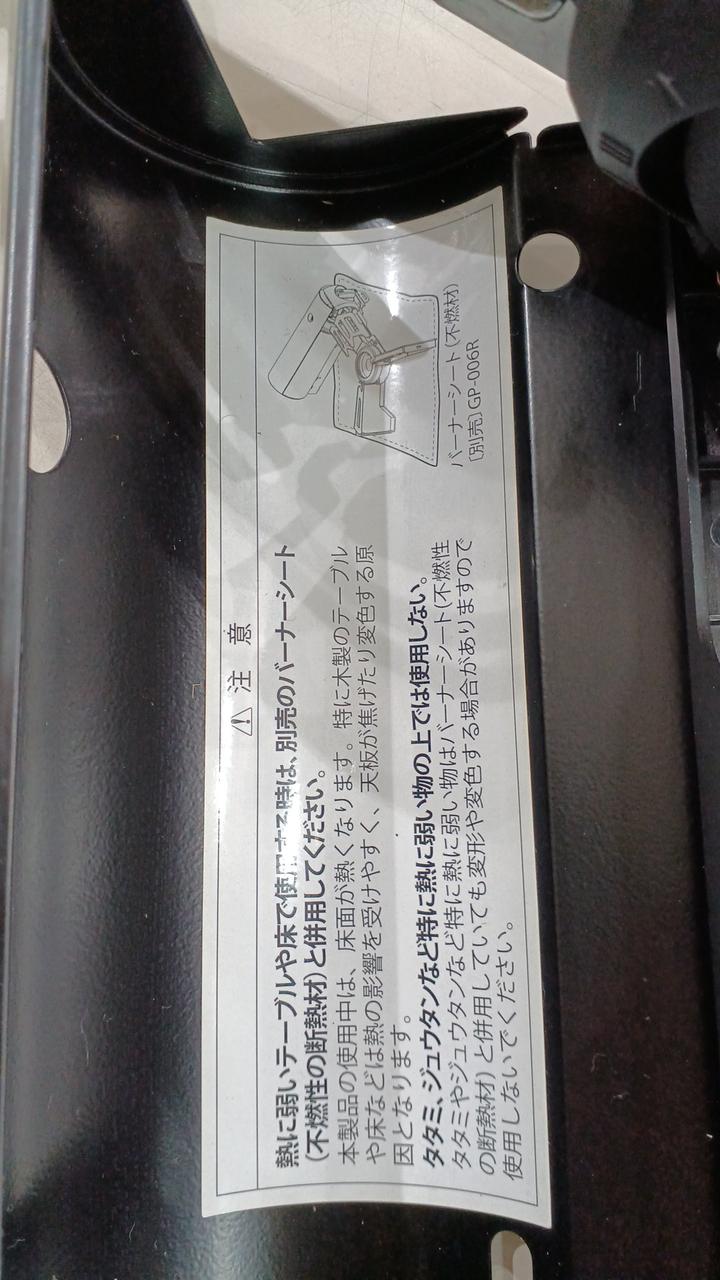 ⚠ 注 意
熱に弱いテーブルや床で使用する時は、別売のバーナーシート
(不燃性の断熱材)と併用してください。
本製品の使用中は、床面が熱くなります。特に木製のテーブル
や床などは熱の影響を受けやすく、天板が焦げたり変色する原
因となります。
タタミ、ジュウタンなど特に熱に弱い物の上では使用しない。
タタミやジュウタンなど特に熱に弱い物はバーナーシート(不燃性
の断熱材)と併用していても変形や変色する場合がありますので
使用しないでください。
バーナーシート(不燃材)
〔別売〕GP-006R